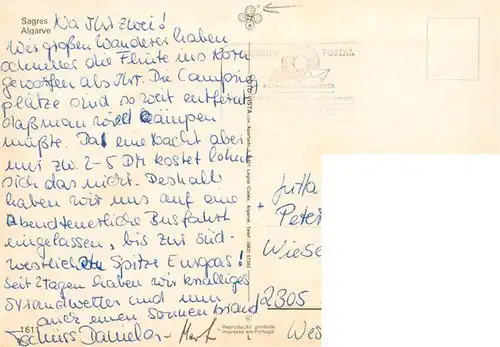 Sagres
Algarve
Na Ihr zwei!
Wir großen Wanderer haben
schneller die Flinte ins Korn
geworfen als Ihr. Die Camping
plätze sind so weit entfernt
daß man wild campen
müßte. Da eine Nacht aber
nur zw. 2-5 DM kostet lohnt
sich das nicht. Deshalb
haben wir uns auf eine
Abenteuerliche Busfahrt
eingelassen, bis zur süd-
westlichen Spitze Europas!
seit 2 Tagen haben wir knalliges
Strandwetter und nun
auch einen Sonnenbrand
Tschüss Daniela
1611
Reprodução proibida
Impresso em Portugal
L
POSTAL
Jutta
+ Peter
Wiese
2305
Wes